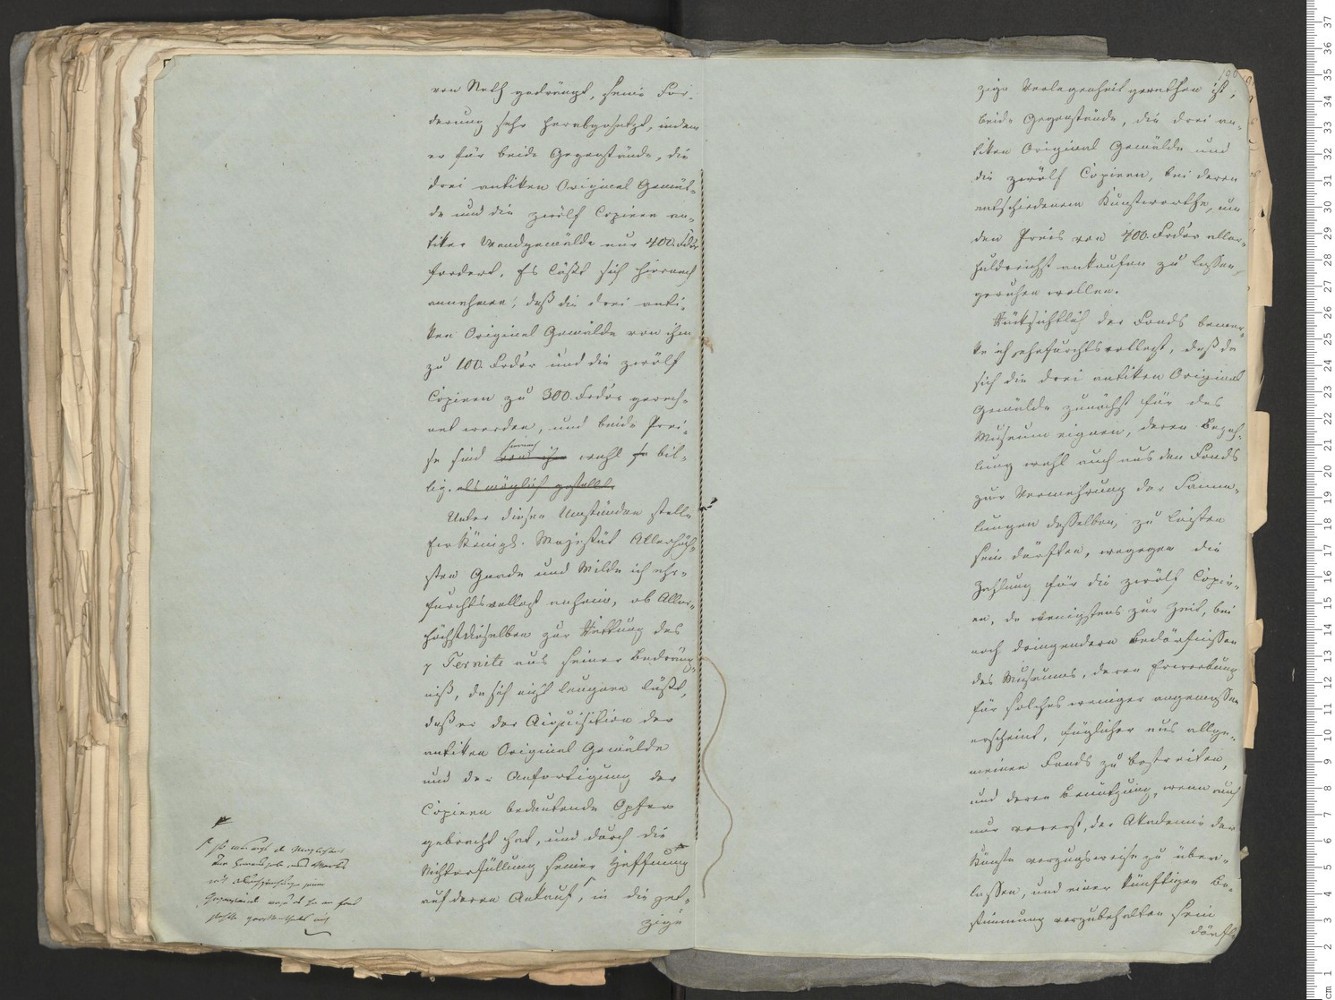 von Noth gedrängt, seine For-
derung sehr herabgesetzt, indem
er für beide Gegenstände, die
drei antiken Original Gemäl-
de und die zwölf Copieen an-
tiker Wandgemälde nur 400. Frdor
fordert. Es läßt sich hiernach
annehmen, daß die drei anti-
ken Original Gemälde von ihm
zu 100. Frdor und die zwölf
Copieen zu 300. Frdor gerech-
net werden, und beide Prei-
se sind wohl so bil-
lig, als möglich gestellt.
Unter diesen Umständen stelle
Ew. Königl. Majestät Allerhöch-
sten Gnade und Milde ich ehr-
furchtsvollest anheim, ob Aller-
höchstdieselben zur Rettung des
p Ternite aus seiner Bedräng-
niß, da sich nicht leugnen läßt,
daß er der Acquisition der
antiken Original Gemälde
und der Anfertigung der
Copieen bedeutende Opfer
gebracht hat, und durch die
Nichterfüllung seiner Hoffnung
auf deren Ankauf, in die jet-
zige
zige Verlegenheit gerathen ist,
beide Gegenstände, die drei an-
tiken Original Gemälde und
die zwölf Copieen, bei deren
entschiedenem Kunstwerthe, um
den Preis von 400. Frdor aller-
huldreichst ankaufen zu lassen,
geruhen wollen.
Rücksichtlich der Fonds bemer-
ke ich ehrfurchtsvollest, daß da
sich die drei antiken Original
Gemälde zunächst für das
Museum eignen, deren Bezah-
lung wohl auch aus den Fonds
zur Vermehrung der Samm-
lungen desselben, zu leisten
sein dürfte, wogegen die
Zahlung für die zwölf Copie-
en, da wenigstens zur Zeit, bei
noch dringendern Bedürfnissen
des Museums, deren Erwerbung
für solches weniger angemessen
erscheint, füglicher aus allge-
meinen Fonds zu bestreiten,
und deren Benutzung, wenn auch
nur vorerst, der Akademie der
Künste vorzugsweise zu über-
lassen, und einer künftigen Be-
stimmung vorzubehalten sein
dürfte